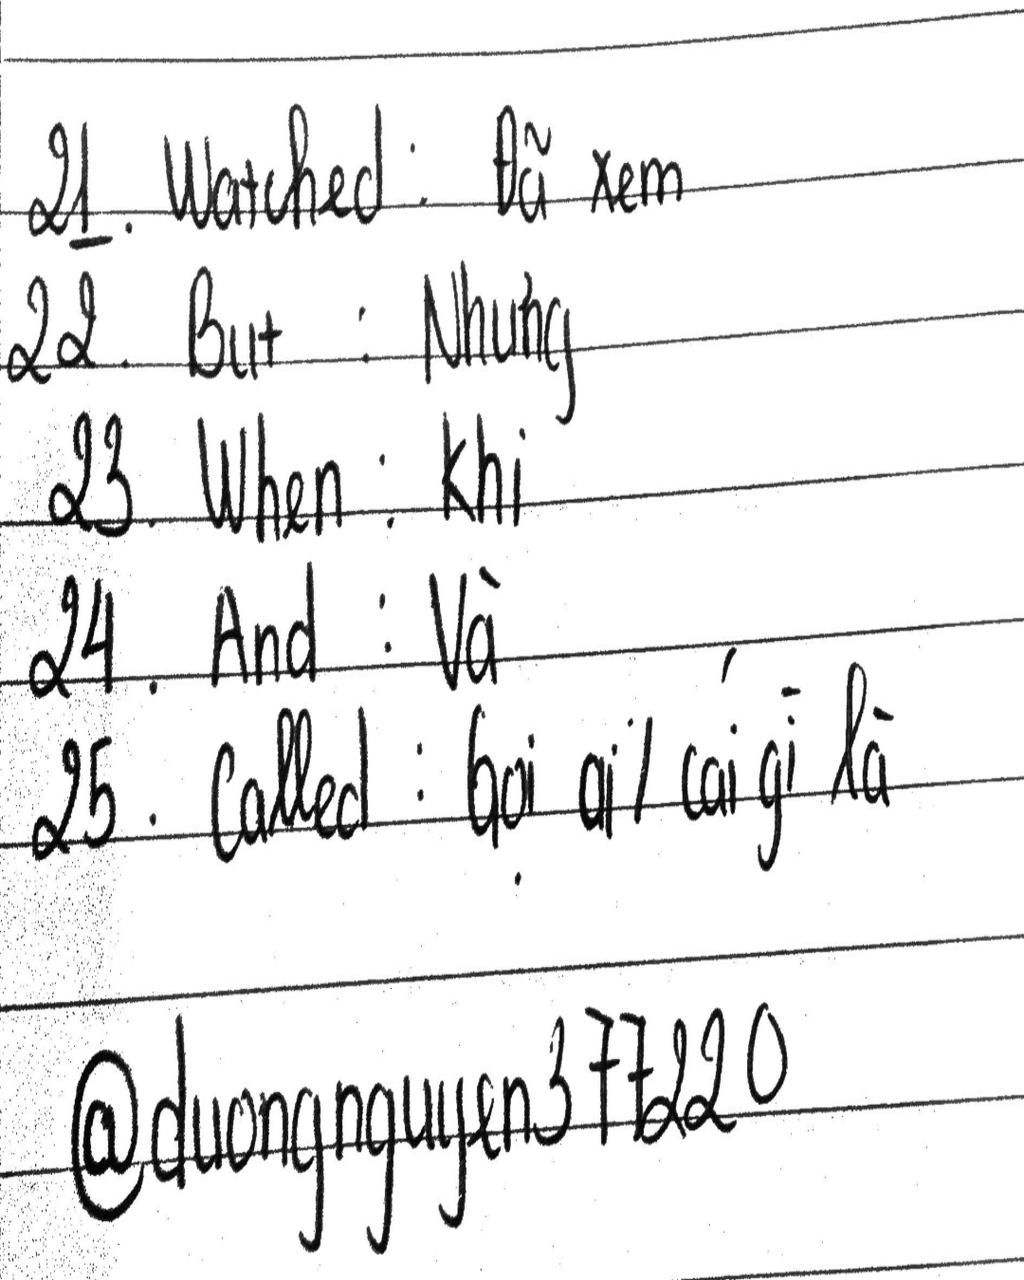 21. Watched : Đã xem
22. But : Nhưng
23. When : Khi
24. And : Và
25. Called : Gọi ai / cái gì là
@duongnguyen377220